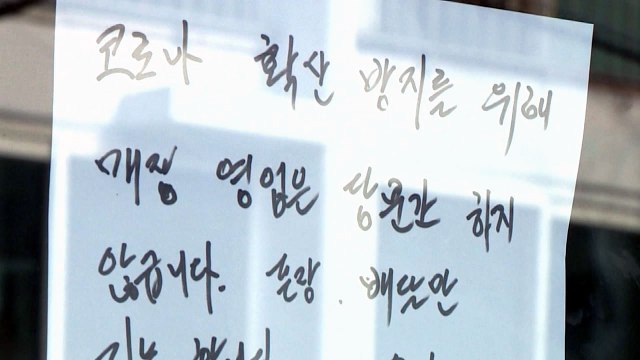 코로나 확산 방지를 위해
매장 영업은 당분간 하지
않습니다. 포장. 배달만